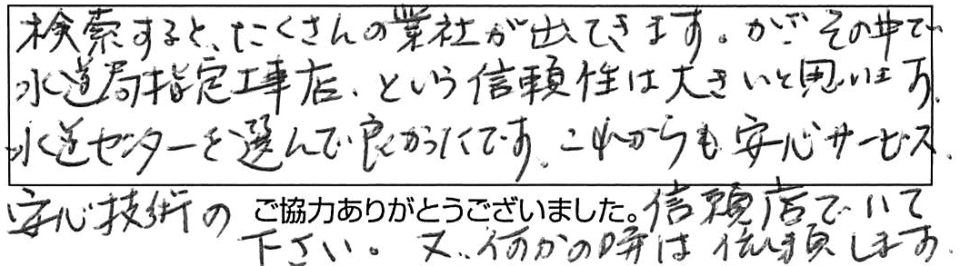 検索すると、たくさんの業社が出てきます。が、その中で
水道局指定工事店、という信頼性は大きいと思います。
水道センターを選んで良かったです。これからも安心サービス、
安心技術の ご協力ありがとうございました。 信頼店でいて
下さい。又、何かの時は依頼します。